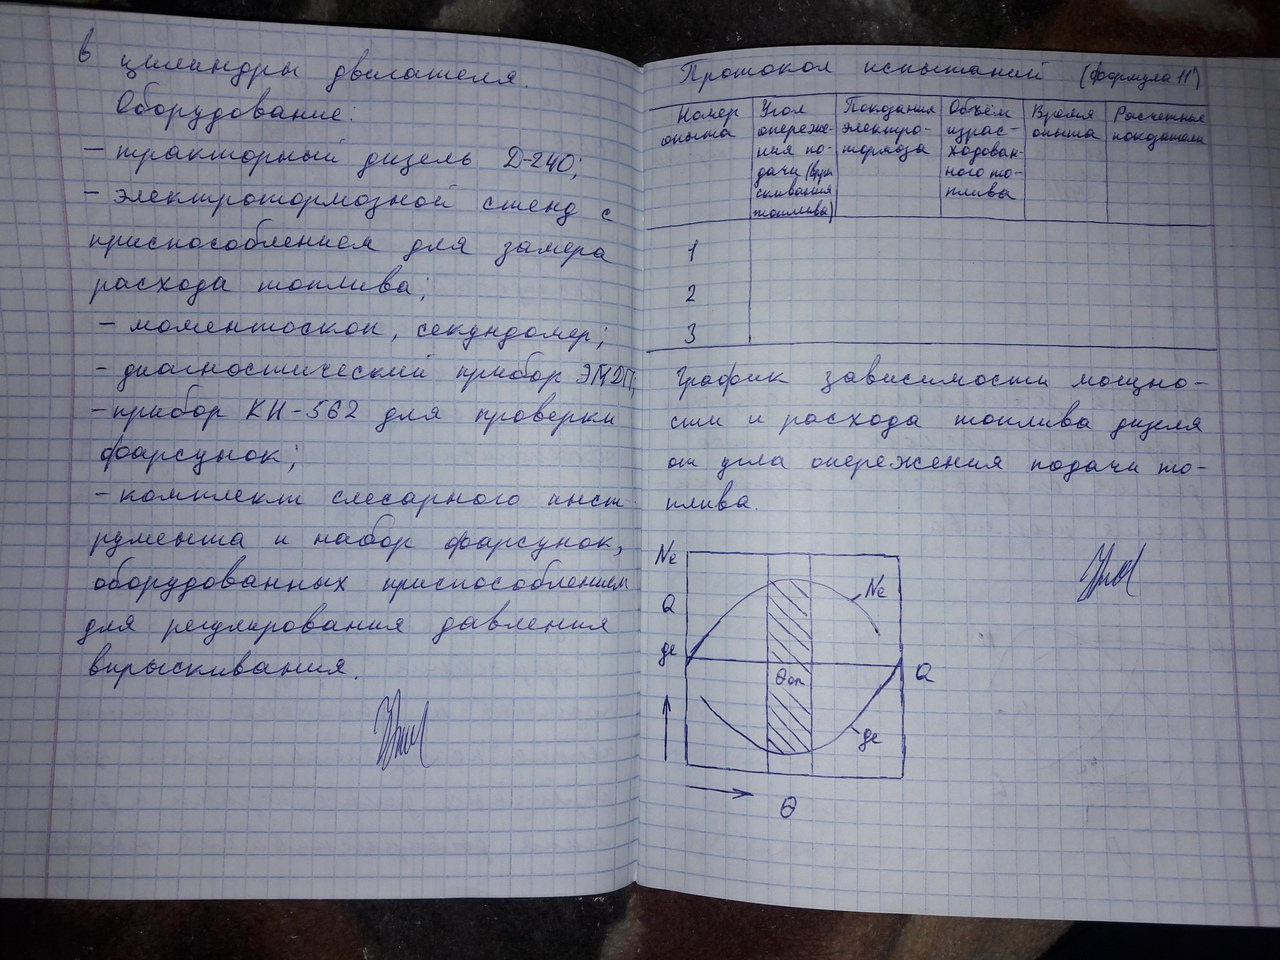 в цилиндры двигателя.
Оборудование:
– тракторный дизель Д-240;
– электротормозной стенд с
приспособлением для замера
расхода топлива;
– моментоскоп, секундомер;
– диагностический прибор ЭМДП;
– прибор КИ-562 для проверки
форсунок;
– комплект слесарного инст
румента и набор форсунок,
оборудованных приспособлением
для регулирования давления
впрыскивания.
Протокол испытаний (формула 11)
Номер опыта
Угол опереже-
ния по-
дачи (впры
скивания
топлива)
Показания
электро-
тормоза
Объём
израс-
ходован-
ного то-
плива
Время
опыта
Расчетные
показатели
1
2
3
График зависимости мощно-
сти и расхода топлива дизеля
от угла опережения подачи то-
плива.
Ne
Q
ge
Ne
θоп
Q
ge
θ